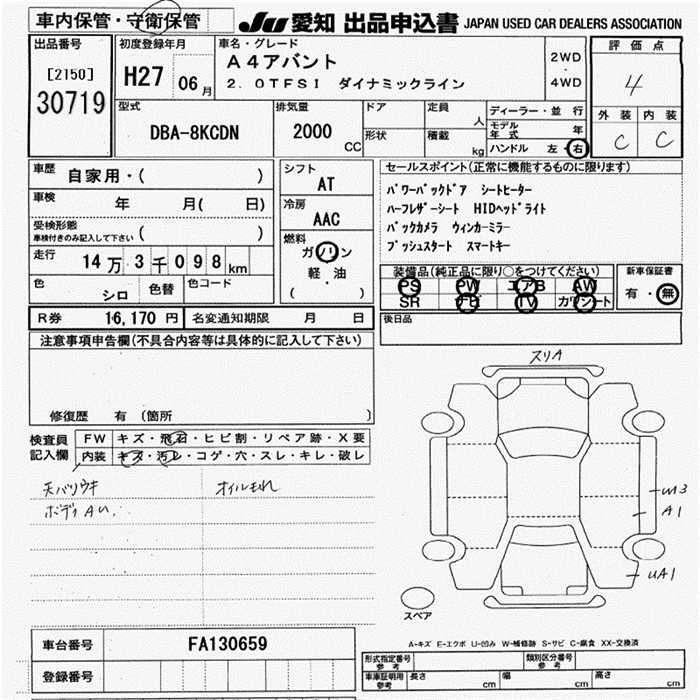 車内保管・守衛保管
JU 愛知 出品申込書 JAPAN USED CAR DEALERS ASSOCIATION
出品番号
[2150]
30719
初度登録年月
H27 06月
車名・グレード
A4アバント
2.0TFSI ダイナミックライン
2WD
・
4WD
評価点
4
外装 内装
C C
型式
DBA-8KCDN
排気量
2000 CC
ドア
形状
定員 人
積載 kg
ディーラー・並行
モデル年式 年
ハンドル 左・右
車歴 自家用・( )
車検 年 月( 日)
受検形態
車検付きのみ記入して下さい ( )
走行 14万3千098km
色 シロ 色替 色コード
シフト
AT
冷房
AAC
燃料
ガソリン
軽・油
( )
セールスポイント(正常に機能するものに限ります)
パワーバックドア シートヒーター
ハーフレザーシート HIDヘッドライト
バックカメラ ウィンカーミラー
プッシュスタート スマートキー
装備品(純正品に限り○をつけてください)
PS PW エアB AW
SR ナビ TV カワシート
新車保証書
有・無
後日品
R券 16,170円 名変通知期限 月 日
注意事項申告欄(不具合内容等は具体的に記入して下さい)
修復歴 有 (箇所 )
検査員記入欄
FW キズ・飛石・ヒビ割・リペア跡・X要
内装 キズ・汚レ・コゲ・穴・スレ・キレ・破レ
天バリウキ オイルもれ
ボディAU.
スリA
W3
A1
UA1
スペア
A-キズ E-エクボ U-凹み W-補修跡 S-サビ C-腐食 XX-交換済
車台番号 FA130659
登録番号
形式指定番号 参考
類別区分番号 参考
車庫証明用 参考
長さ cm 幅 cm 高さ cm